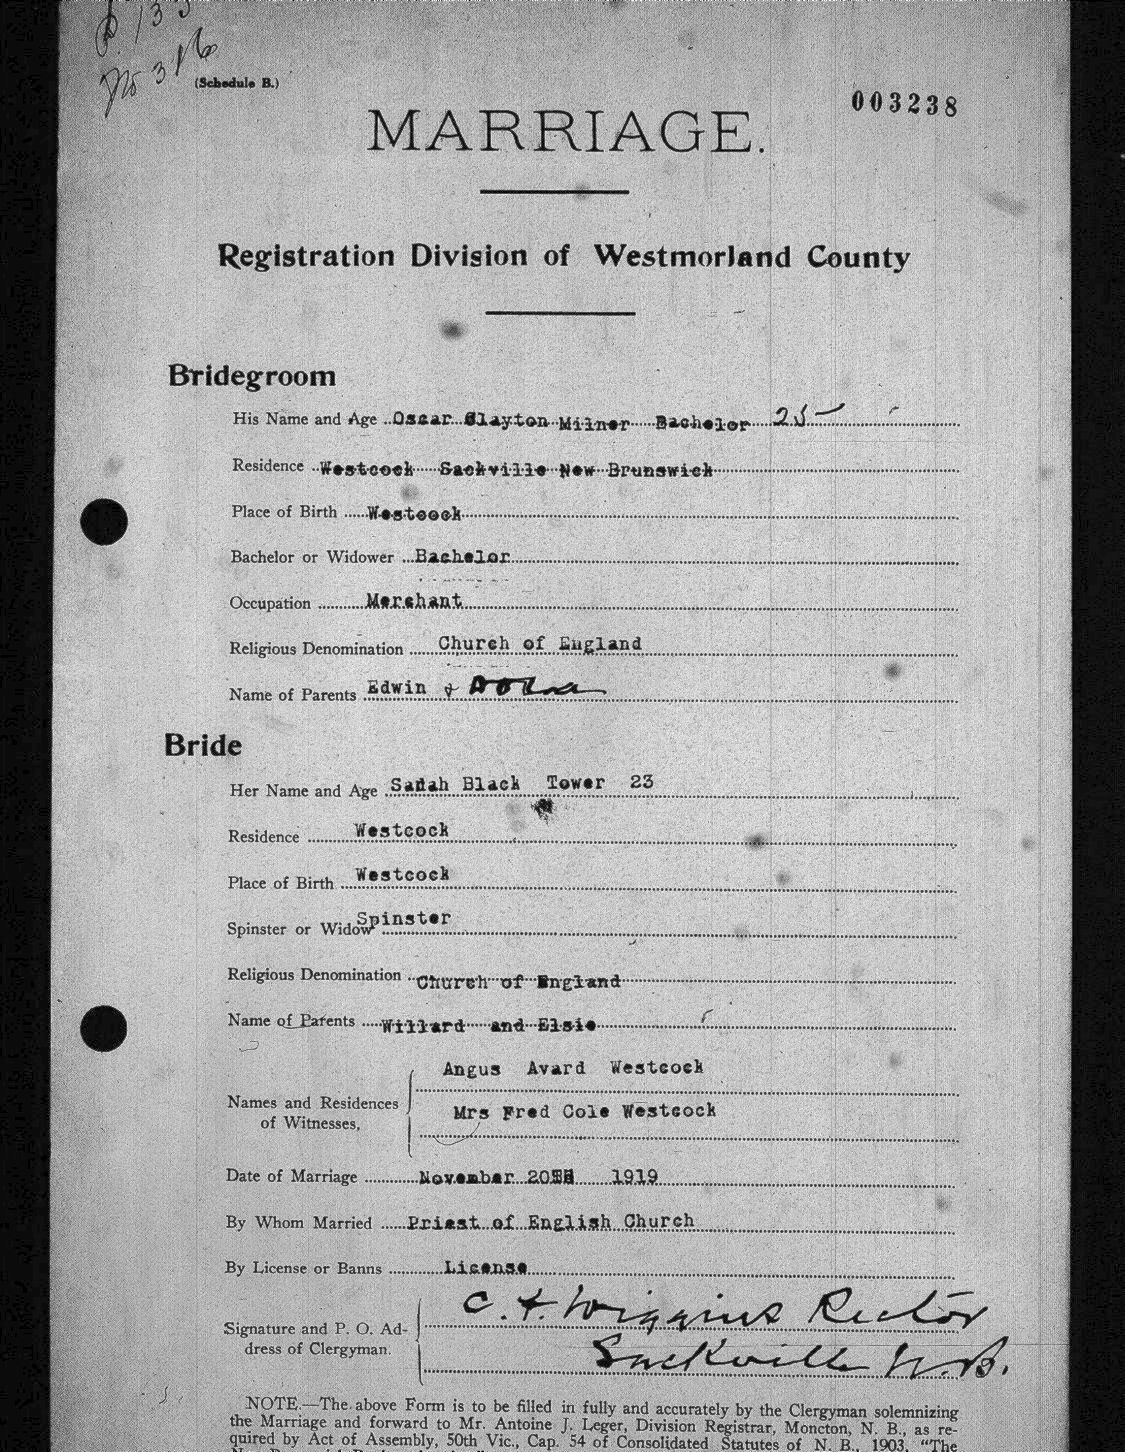 P. 133
No 316
(Schedule B.)
003238
MARRIAGE.
Registration Division of Westmorland County
Bridegroom
His Name and Age Oscar Clayton Milner Bachelor 25
Residence Westcock Sackville New Brunswick
Place of Birth Westcock
Bachelor or Widower Bachelor
Occupation Merchant
Religious Denomination Church of England
Name of Parents Edwin &
Bride
Her Name and Age Sarah Black Tower 23
Residence Westcock
Place of Birth Westcock
Spinster or Widow Spinster
Religious Denomination Church of England
Name of Parents Willard and Elsie
Angus Avard Westcock
Names and Residences
Mrs Fred Cole Westcock
of Witnesses,
Date of Marriage November 20th 1919
By Whom Married Priest of English Church
By License or Banns License
C. F. Wiggins Rector
Signature and P. O. Ad-
Sackville N.B.
dress of Clergyman.
NOTE.—The above Form is to be filled in fully and accurately by the Clergyman solemnizing
the Marriage and forward to Mr. Antoine J. Leger, Division Registrar, Moncton, N. B., as re-
quired by Act of Assembly, 50th Vic., Cap. 54 of Consolidated Statutes of N. B., 1903, "The